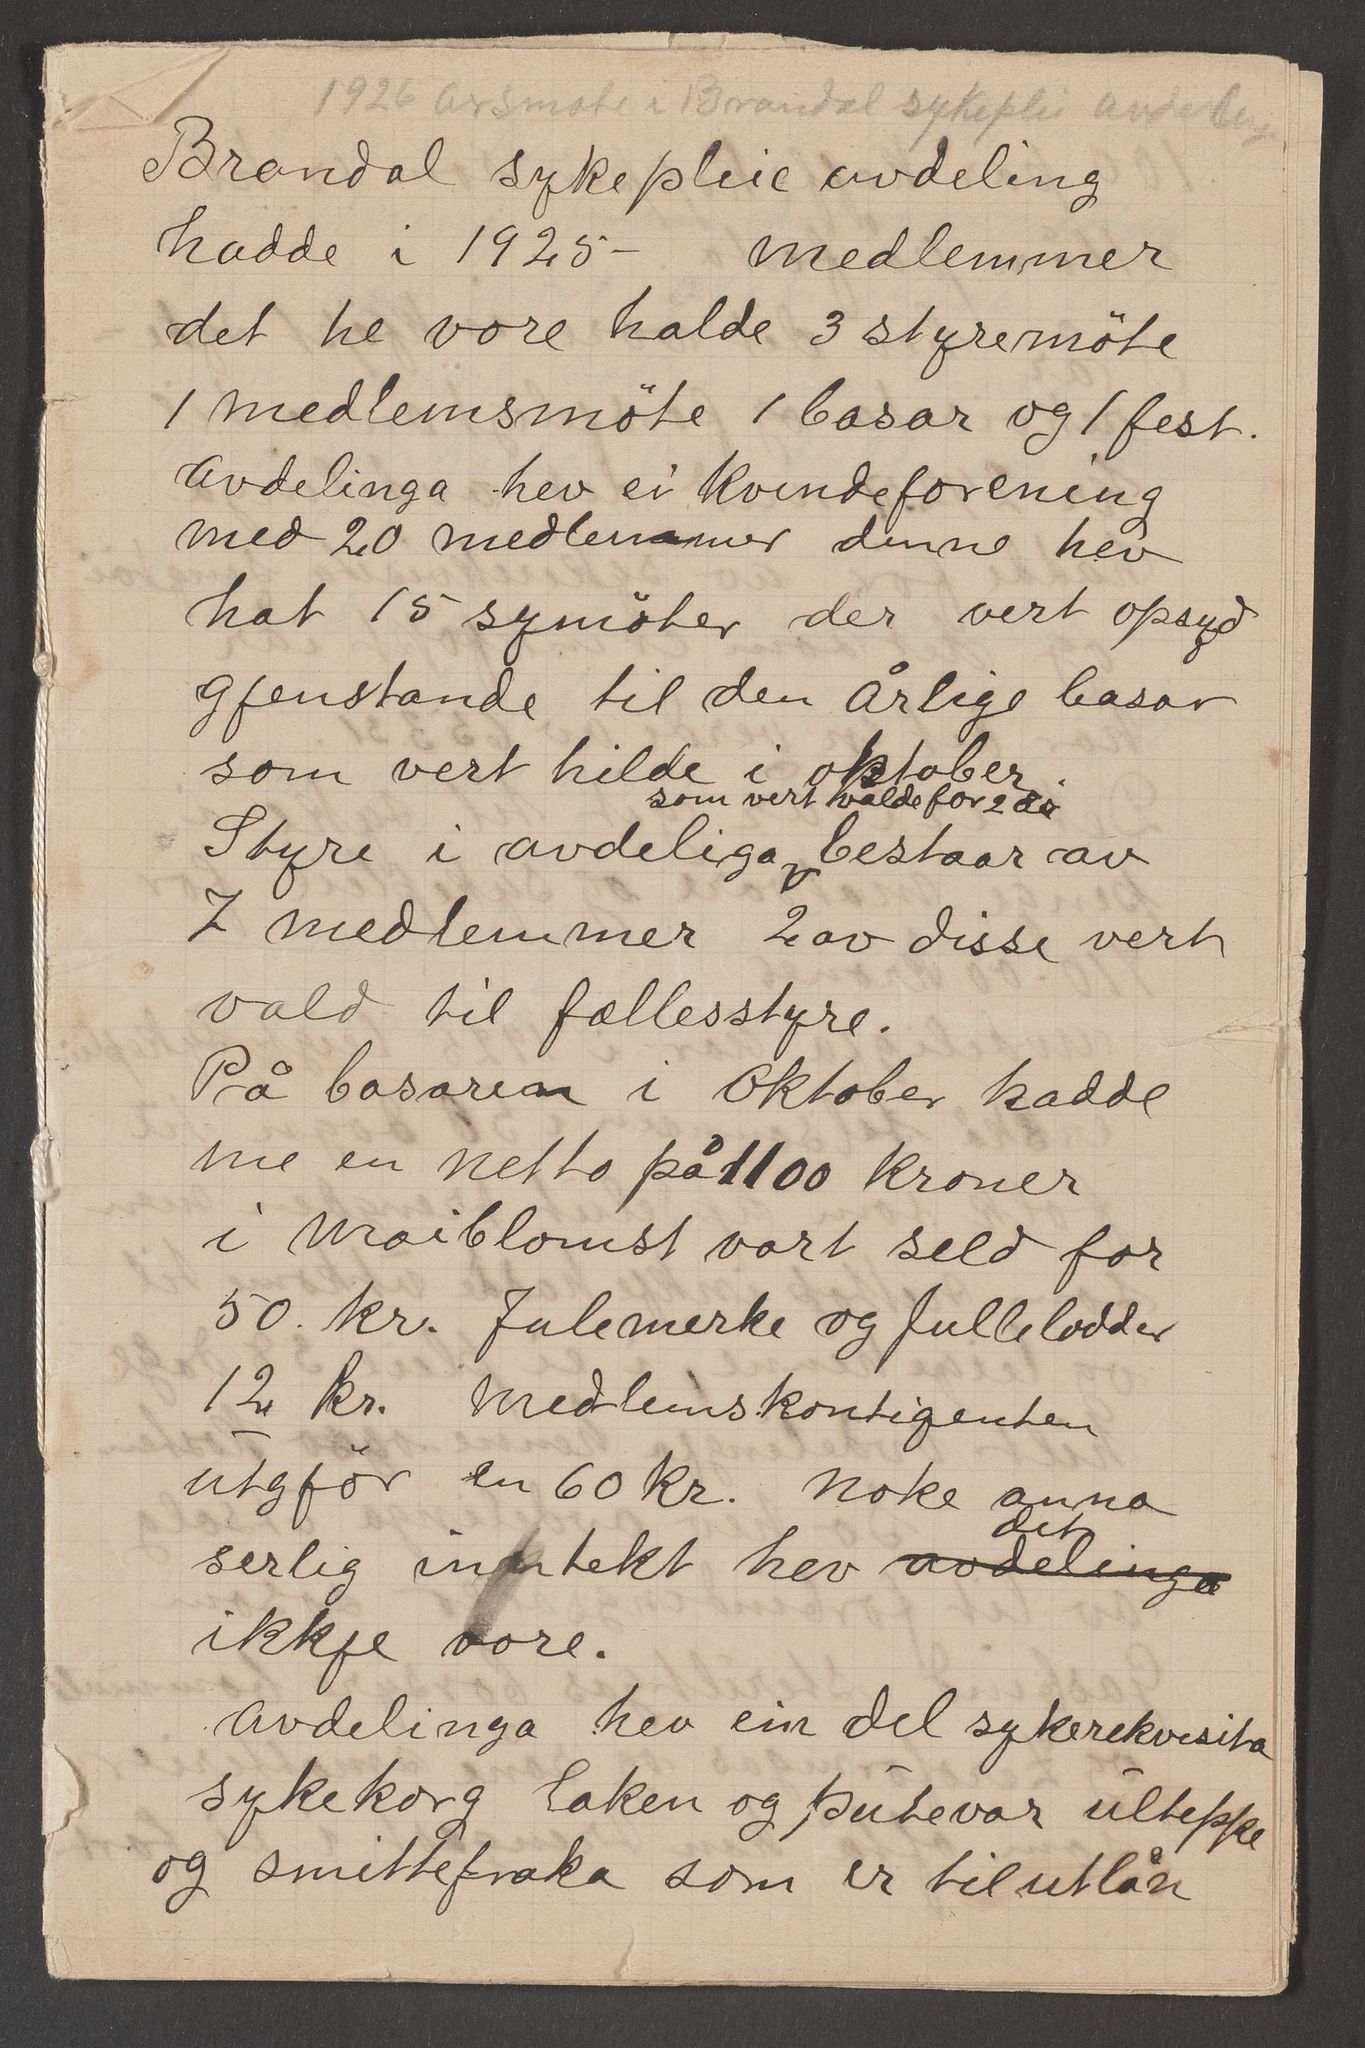 1926 Arsmøte i Brandal sykepleie avdeling
Brandal sykepleie avdeling
hadde i 1925- medlemmer
det he vore halde 3 styremöte
1 medlemsmöte 1 basar og 1 fest.
Avdelinga hev ei kvindeforening
med 20 medlemmer denne hev
hat 15 symöter der vert opsyd
gjenstande til den årlige basar
som vert hilde i oktober.
som vert valde for 2 år
Styre i avdeliga bestaar av
7 medlemmer 2 av disse vert
vald til fællesstyre.
På basaren i Oktober hadde
me en netto på 1100 kroner
i Maiblomst vart seld for
50. kr. Julemerke og Jullelodder
12 kr. Medlemskontigenten
utgjör en 60 kr. Noke anna
det
serlig inntekt hev avdelinga
ikkje vore.
Avdelinga hev ein del sykerekvisita
sykekorg laken og putevar ulteppe
og smittefraka som er til utlån